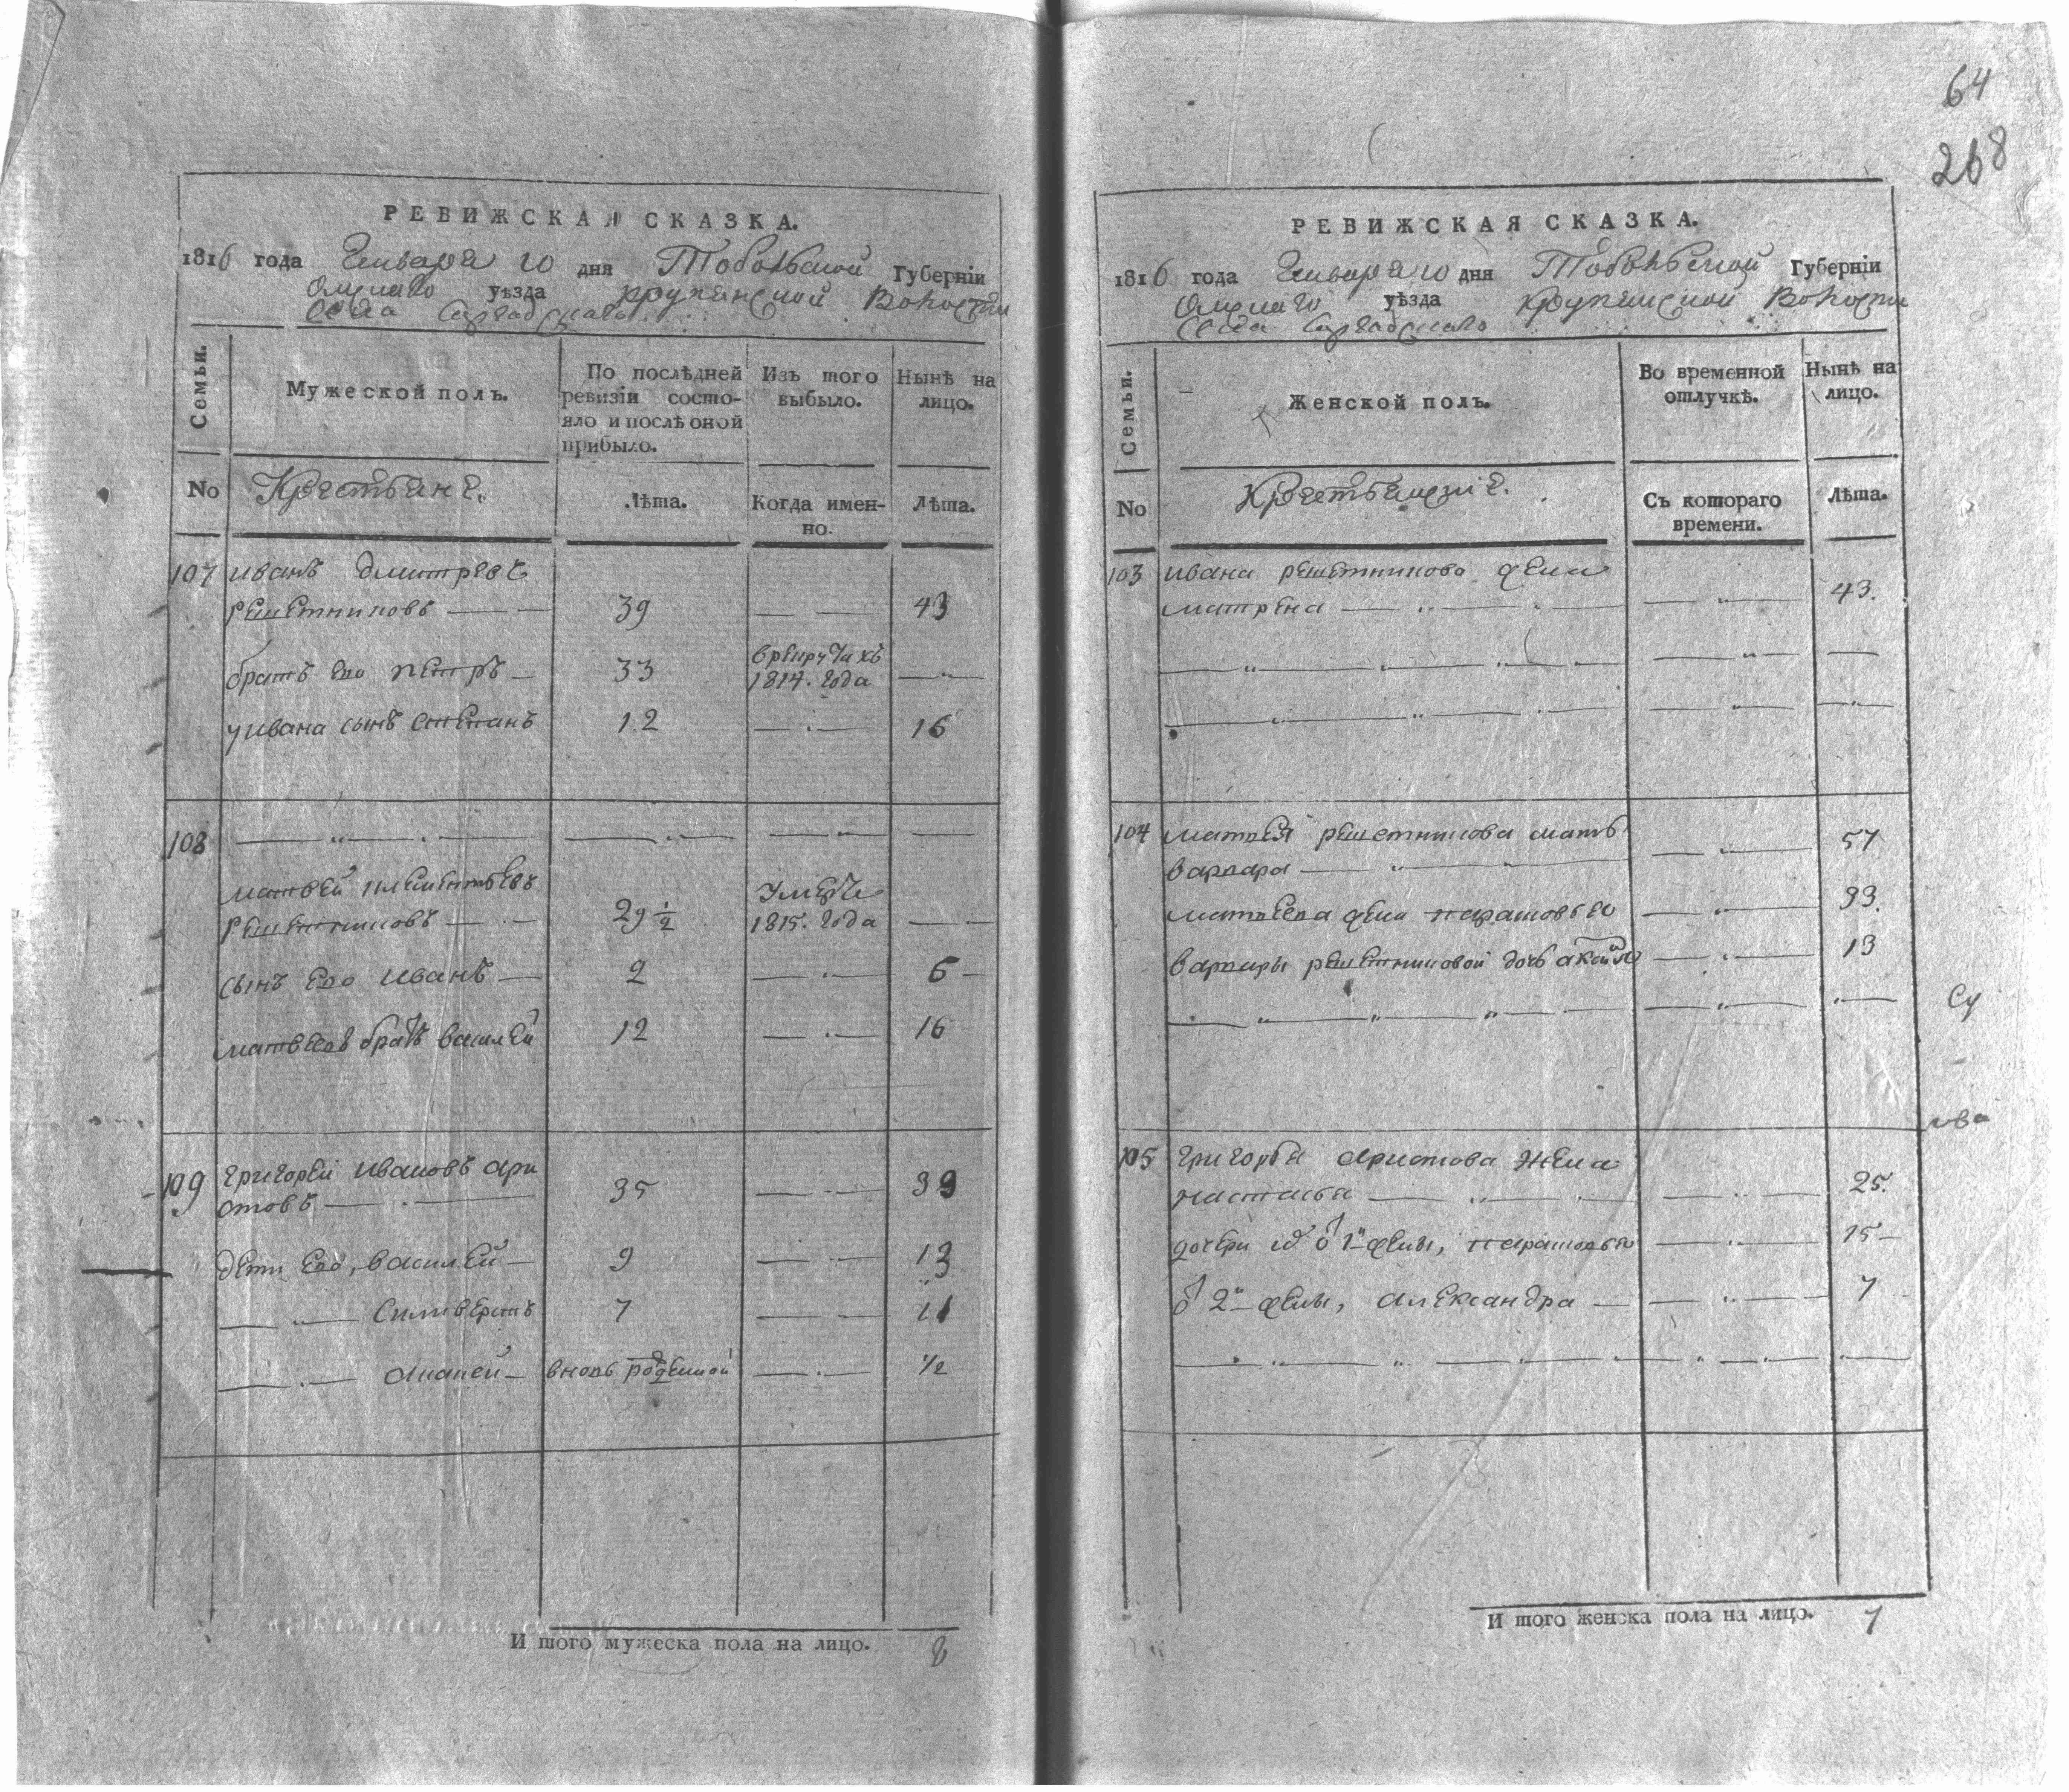 64
268
РЕВИЖСКАЯ СКАЗКА.
1816 года Генваря 10 дня Тобольской Губерніи
Омскаго уѣзда Крупянской Волости
Села
Семьи.
Мужеской полъ.
По послѣдней ревизіи состо-
яло и послѣ оной прибыло.
Изъ того выбыло.
Нынѣ на лицо.
No
Крестьяне.
Лѣта.
Когда имен-
но.
Лѣта.
107 иванъ дмитревъ
решетниковъ 39 43
братъ его петръ 33 в рекрутахъ 1814. года
у ивана сынъ степанъ 12 16
108
матвей клементьевъ
решетниковъ 29 1/2 умеръ 1815. года
сынъ его иванъ 2 6
матвеевъ братъ василей 12 16
109 григорей ивановъ ари
стовъ 35 39
дети его, василей 9 13
силиверстъ 7 11
ананей вновь рожденной 1/2
И того мужеска пола на лицо. 8
РЕВИЖСКАЯ СКАЗКА.
1816 года Генваря 10 дня Тобольской Губерніи
Омскаго уѣзда Крупянской Волости
Села
Семьи.
Женской полъ.
Во временной отлучкѣ.
Нынѣ на лицо.
No
Крестьянскіе.
Съ котораго времени.
Лѣта.
103 ивана решетникова жена
матрена 43.
104 матвея решетникова мать
варвара 57
матвеева жена парасковья 33.
варвары решетниковой дочь 13
105 григорья аристова жена
настасья 25.
дочери от 1й жены, парасковья 15
от 2й жены, александра 7
И того женска пола на лицо. 7